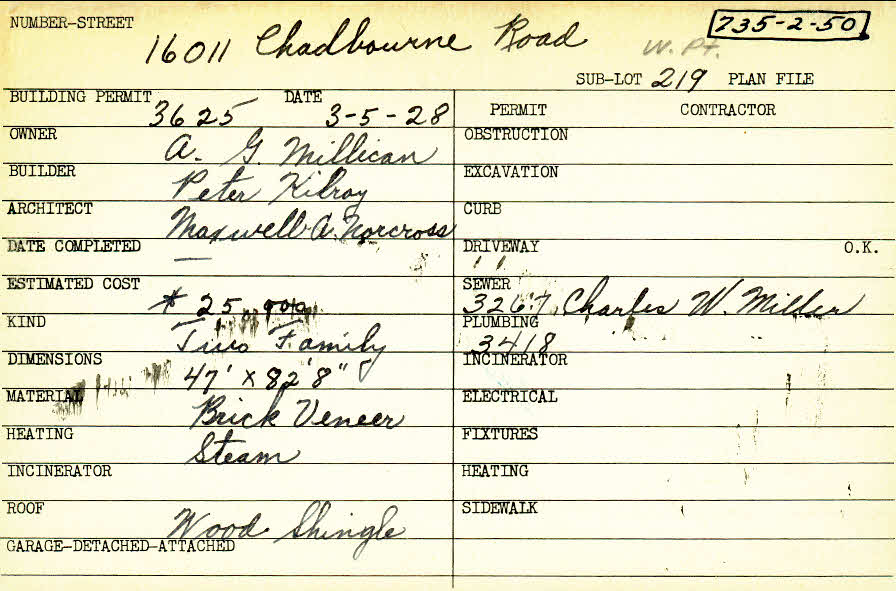 NUMBER-STREET 16011 Chadbourne Road W. Pt. 735-2-50
SUB-LOT 219 PLAN FILE
BUILDING PERMIT 3625 DATE 3-5-28
PERMIT CONTRACTOR
OWNER A. G. Millican
OBSTRUCTION
BUILDER Peter Kilroy
EXCAVATION
ARCHITECT Maxwell A. Norcross
CURB
DATE COMPLETED —
DRIVEWAY O.K.
ESTIMATED COST $25,000
SEWER 3267 Charles W. Miller
KIND Two Family
PLUMBING 3418
DIMENSIONS 47' x 82'8"
INCINERATOR
MATERIAL Brick Veneer
ELECTRICAL
HEATING Steam
FIXTURES
INCINERATOR
HEATING
ROOF Wood Shingle
SIDEWALK
GARAGE-DETACHED-ATTACHED